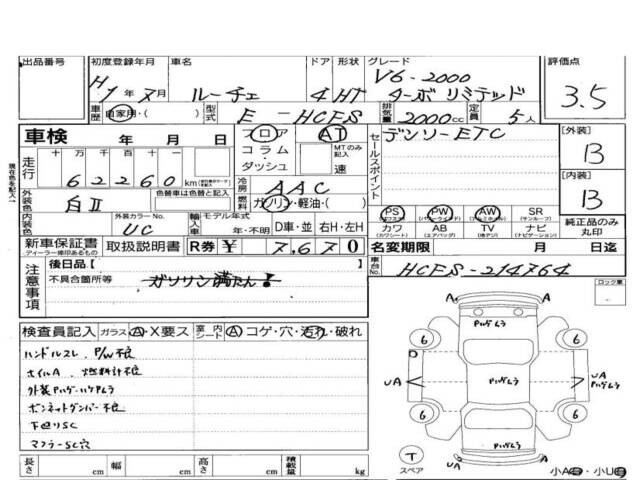 出品番号 初度登録年月 車名 ドア 形状 グレード 評価点
H 1年 7月 ルーチェ 4 HT V6-2000 ターボリミテッド 3.5
車歴 自家用・( ) 型式 E-HCFS 排気量 2000cc 定員 5人
車検 年 月 日
フロア コラム・ダッシュ AT MTのみ記入 速
走行 十万千百十一 62260km
セールスポイント デンソーETC
[外装] B
[内装] B
冷房 AAC
外装色 白II 色替車は色替と記入
燃料 ガソリン・軽油・( )
内装色 外装カラーNo. UC
輸入車 モデル年式 年・不明 D車・並 右H・左H
PS PW AW SR
カワ AB TV ナビ
純正品のみ丸印
新車保証書 取扱説明書 R券 ¥ 7,670
名変期限 月 日迄
車台No. HCFS-214764
現在色を記入
注意事項 後日品【 】
不具合箇所等 ガソリン満たん!
ロック車
検査員記入 ガラス・A・X要ス 室内シート A コゲ・穴・汚れ・破れ
ハンドルスレ、P/W不良
ホイルA、燃料計不良
外装Pハゲ・ハケムラ
ボンネットダンパー不良
下廻りSC
マフラーSC穴
A A
Pハゲムラ
6 6
UA Pハゲムラ UA Pハゲムラ
6 6
Pハゲムラ
T スペア UA A
小A・小U
長さ cm 幅 cm 高さ cm 積載量 kg